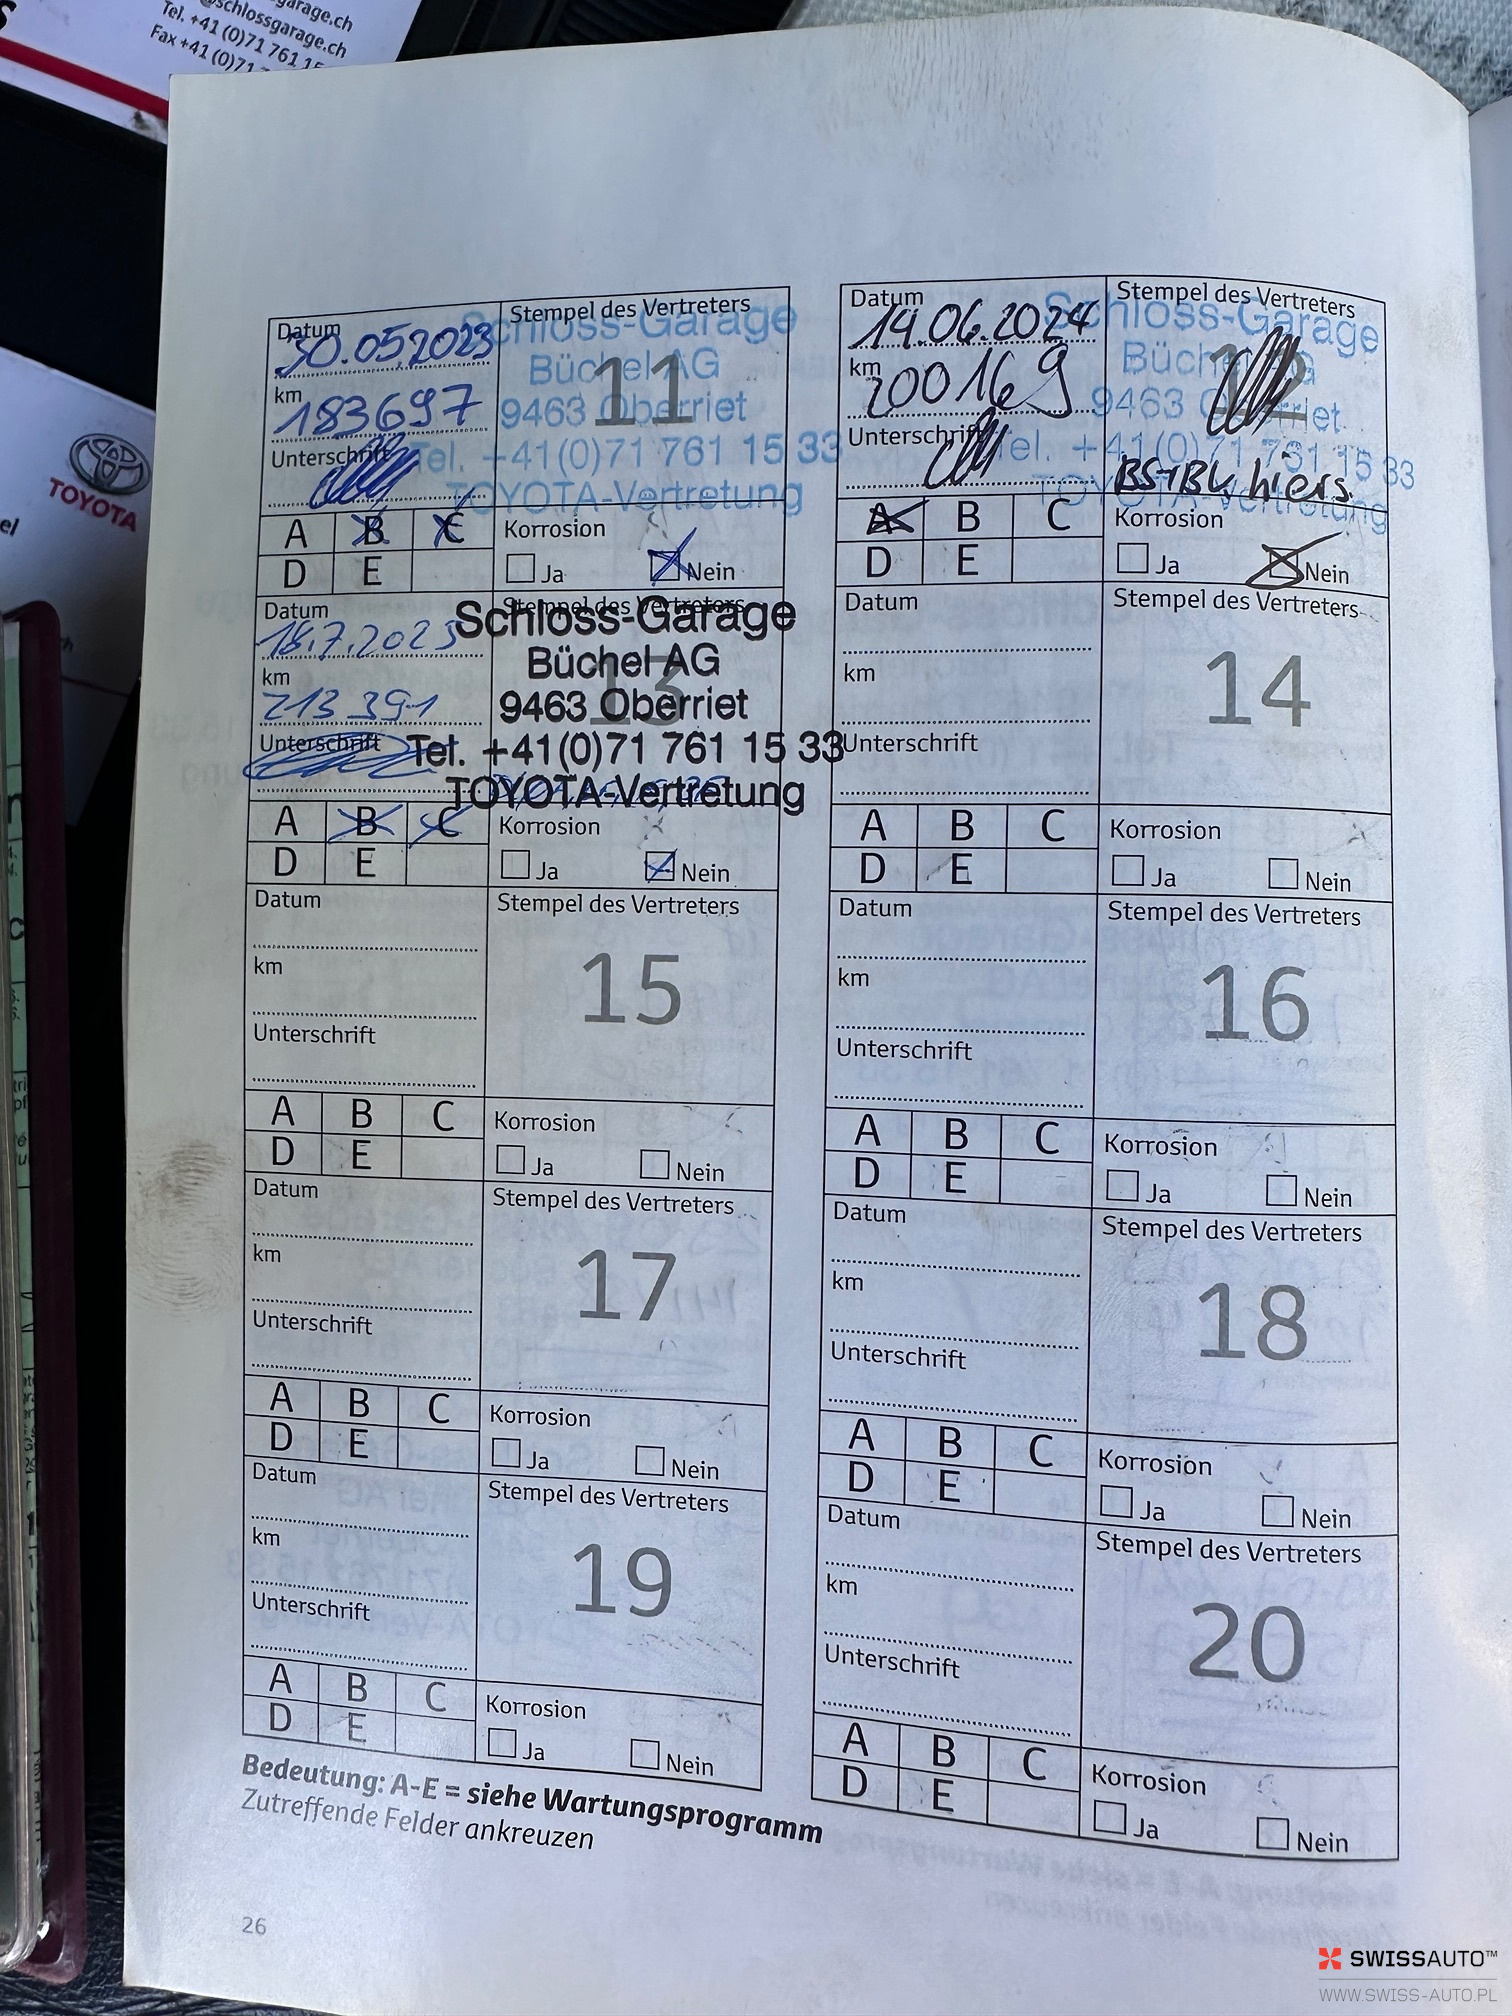 schlossgarage.ch
Tel. +41 (0)71 761 15
Fax +41 (0)71
TOYOTA
Datum
30.05.2023
km
183697
Unterschrift
Stempel des Vertreters
11
Schloss-Garage
Büchel AG
9463 Oberriet
Tel. +41(0)71 761 15 33
TOYOTA-Vertretung
A B C
D E
Korrosion
Ja Nein
Datum
19.06.2024
km
200169
Unterschrift
Stempel des Vertreters
Schloss-Garage
Büchel AG
9463 Oberriet
Tel. +41(0)71 761 15 33
TOYOTA-Vertretung
A B C
D E
Korrosion
Ja Nein
Datum
km
213391
Unterschrift
Stempel des Vertreters
13
Schloss-Garage
Büchel AG
9463 Oberriet
Tel. +41(0)71 761 15 33
TOYOTA-Vertretung
A B C
D E
Korrosion
Ja Nein
Datum
km
Unterschrift
Stempel des Vertreters
14
A B C
D E
Korrosion
Ja Nein
Datum
km
Unterschrift
Stempel des Vertreters
15
A B C
D E
Korrosion
Ja Nein
Datum
km
Unterschrift
Stempel des Vertreters
16
A B C
D E
Korrosion
Ja Nein
Datum
km
Unterschrift
Stempel des Vertreters
17
A B C
D E
Korrosion
Ja Nein
Datum
km
Unterschrift
Stempel des Vertreters
18
A B C
D E
Korrosion
Ja Nein
Datum
km
Unterschrift
Stempel des Vertreters
19
A B C
D E
Korrosion
Ja Nein
Datum
km
Unterschrift
Stempel des Vertreters
20
A B C
D E
Korrosion
Ja Nein
Bedeutung: A-E = siehe Wartungsprogramm
Zutreffende Felder ankreuzen
26
SWISSAUTO™
WWW.SWISS-AUTO.PL